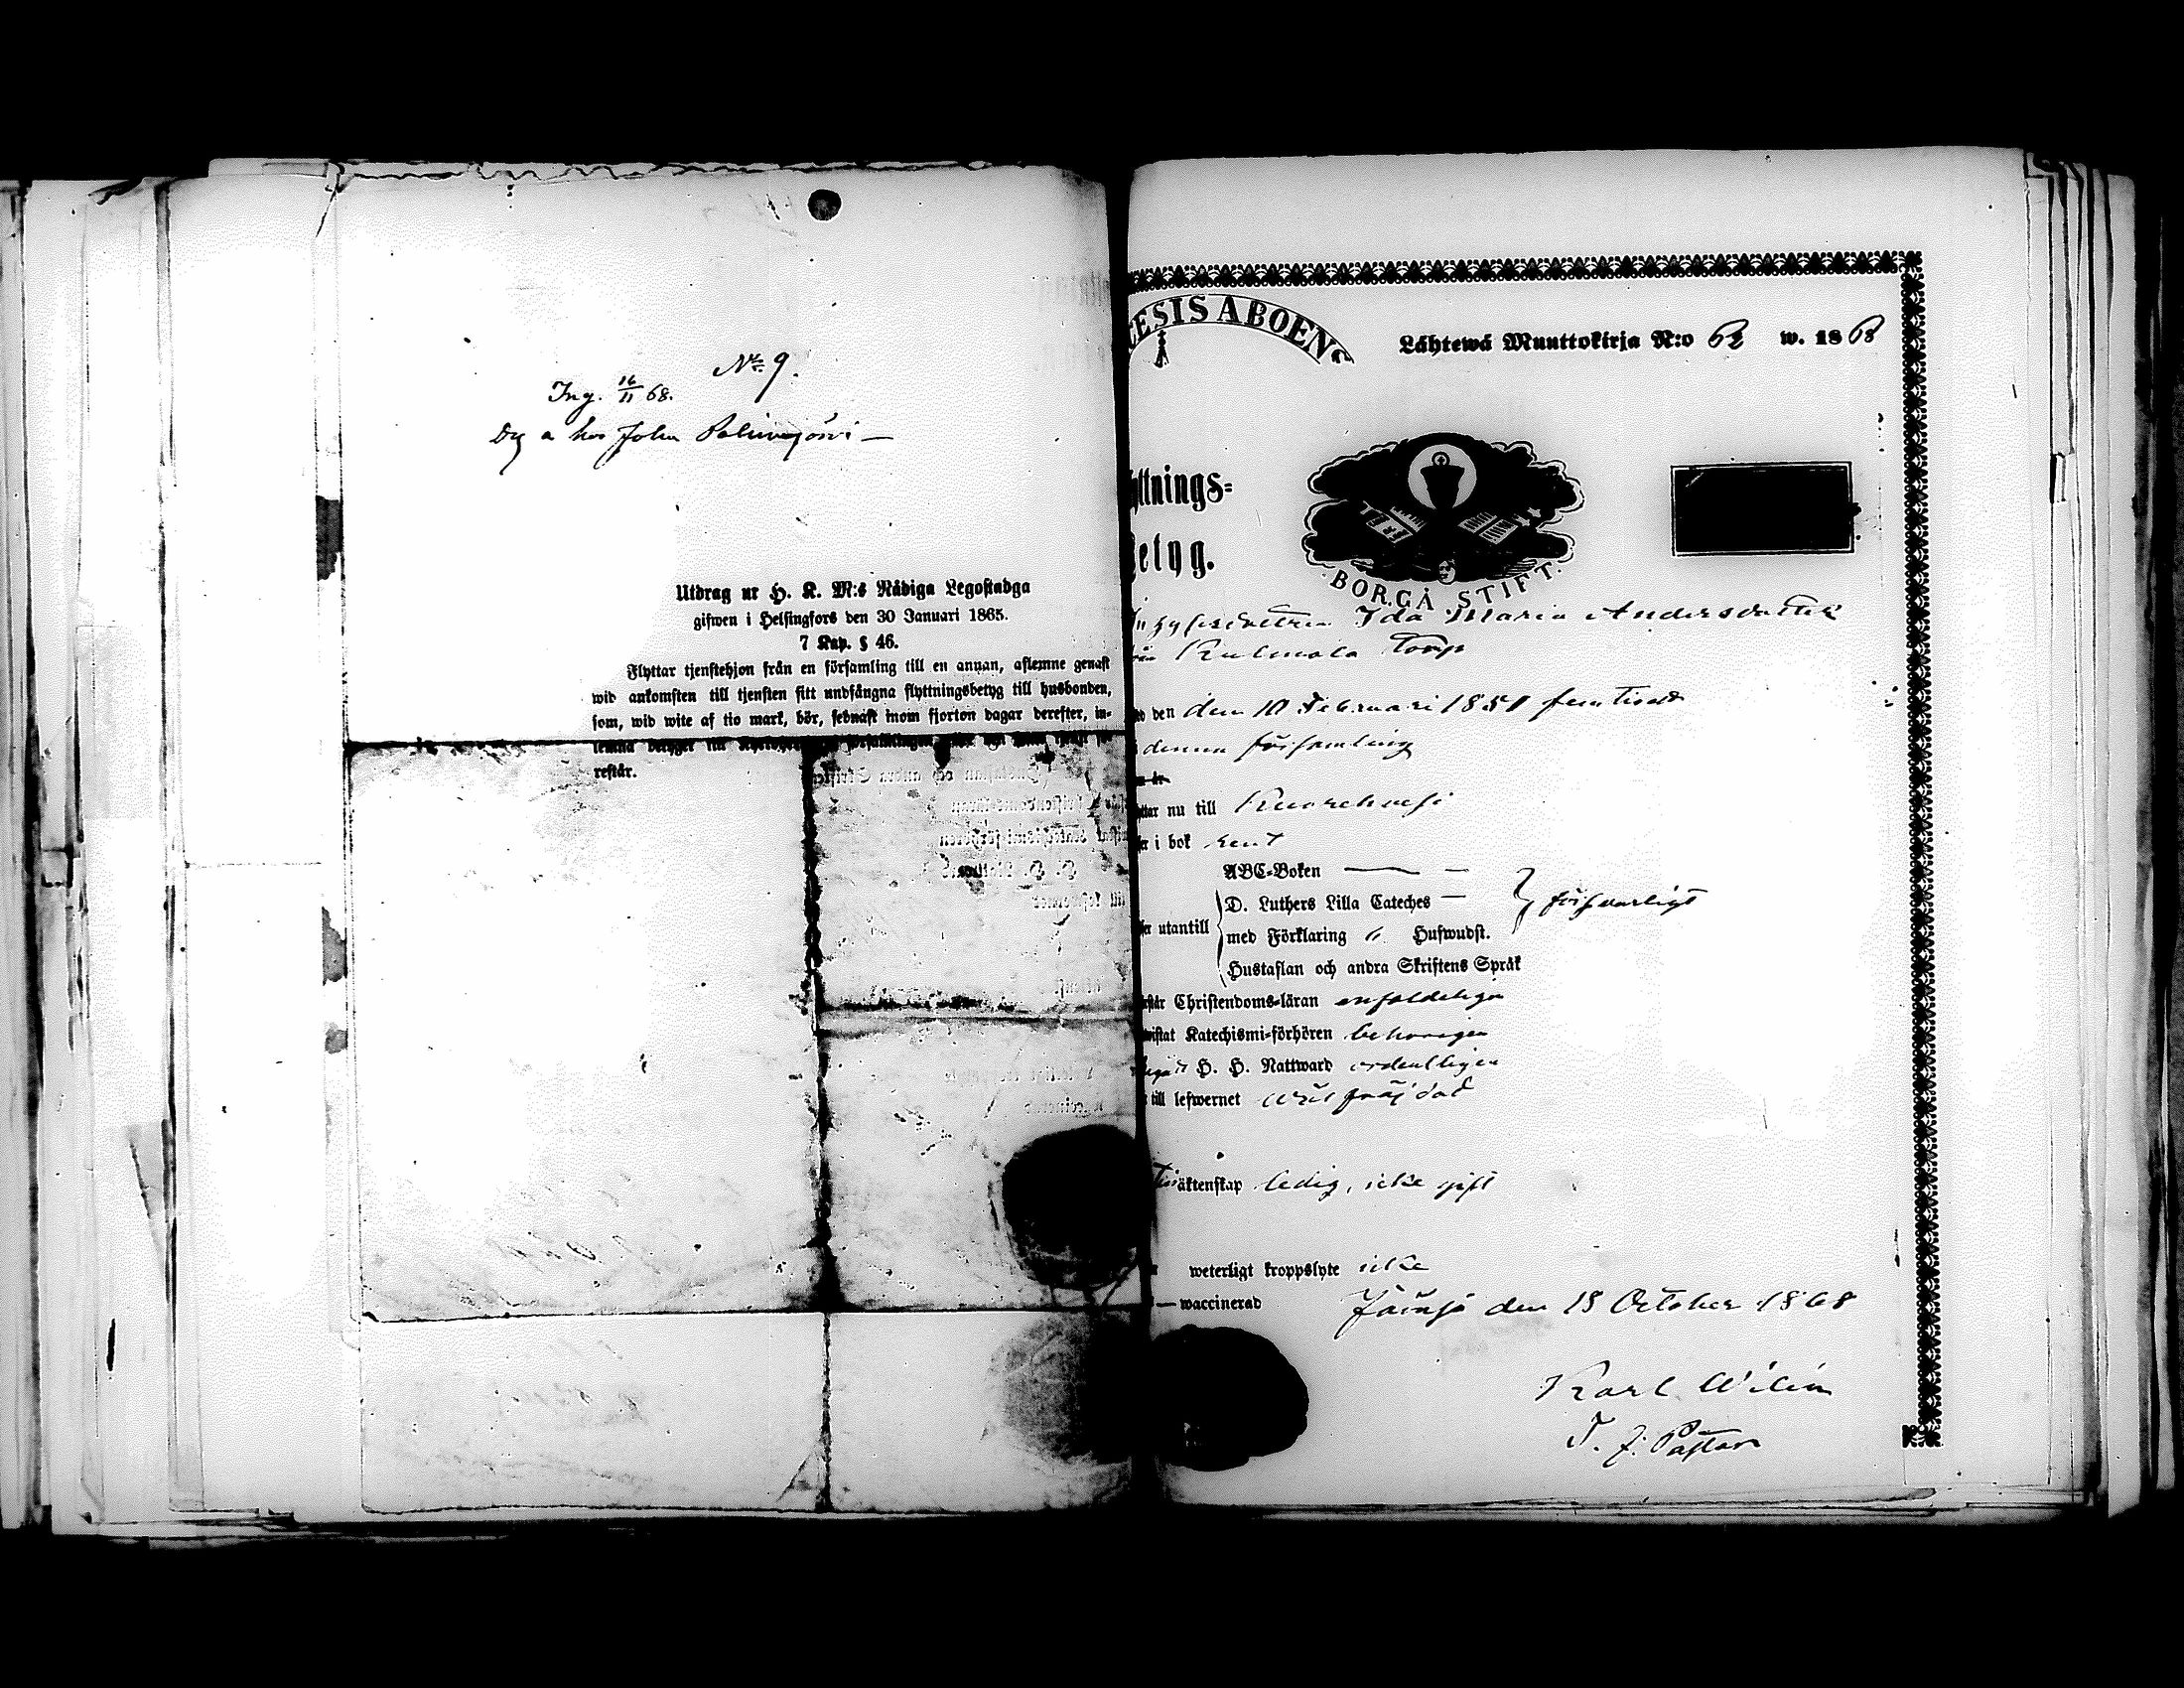 No 9.
Ing. 16/11 68.
Dg a hos John
Utdrag ur H. K. M:s Nådiga Legostadga
gifwen i Helsingfors den 30 Januari 1865.
7 Kap. § 46.
Flyttar tjenstehjon från en församling till en annan, aflemne genast
wid ankomsten till tjensten sitt undfångna flyttningsbetyg till husbonden,
som, wid wite af tio mark, bör, sednast inom fjorton dagar derefter, in-
lemna betyget till
restår.
CESIS ABOENS
Lähtewä Muuttokirja N:o 62 w. 1868
yttnings-
Betyg.
BORGÅ STIFT.
Ida Maria Andersdotter
Kulmala Torp
den den 10 Februari 1851 femtioett
denna församling
ttar nu till Kuorehvesi
er i bok rent
ABC-Boken — —
D. Luthers Lilla Cateches —
med Förklaring 6 Hufwudst.
utantill
försvarligt
Hustaflan och andra Skriftens Språk
står Christendoms-läran enfaldeligen
wistat Katechismi-förhören behörigen
H. H. Nattward ordentligen
till lefwernet wälfräjdad
Till äktenskap ledig, icke gift
weterligt kroppslyte icke
— waccinerad
Jämsä den 15 October 1868
Karl Wilén
T. f. Pastor